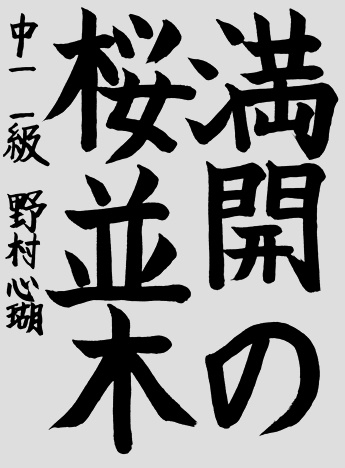 満開の
桜並木
中一 二級 野村心瑚